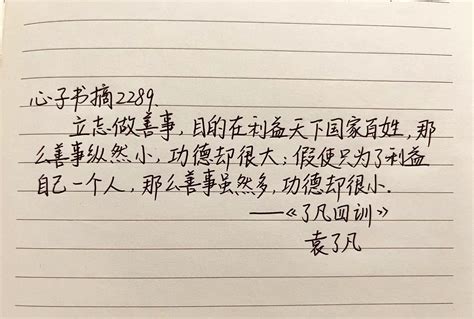 心子书摘2289.
立志做善事，目的在利益天下国家百姓，那
么善事纵然小，功德却很大；假使只为了利益
自己一个人，那么善事虽然多，功德却很小.
——《了凡四训》
袁了凡